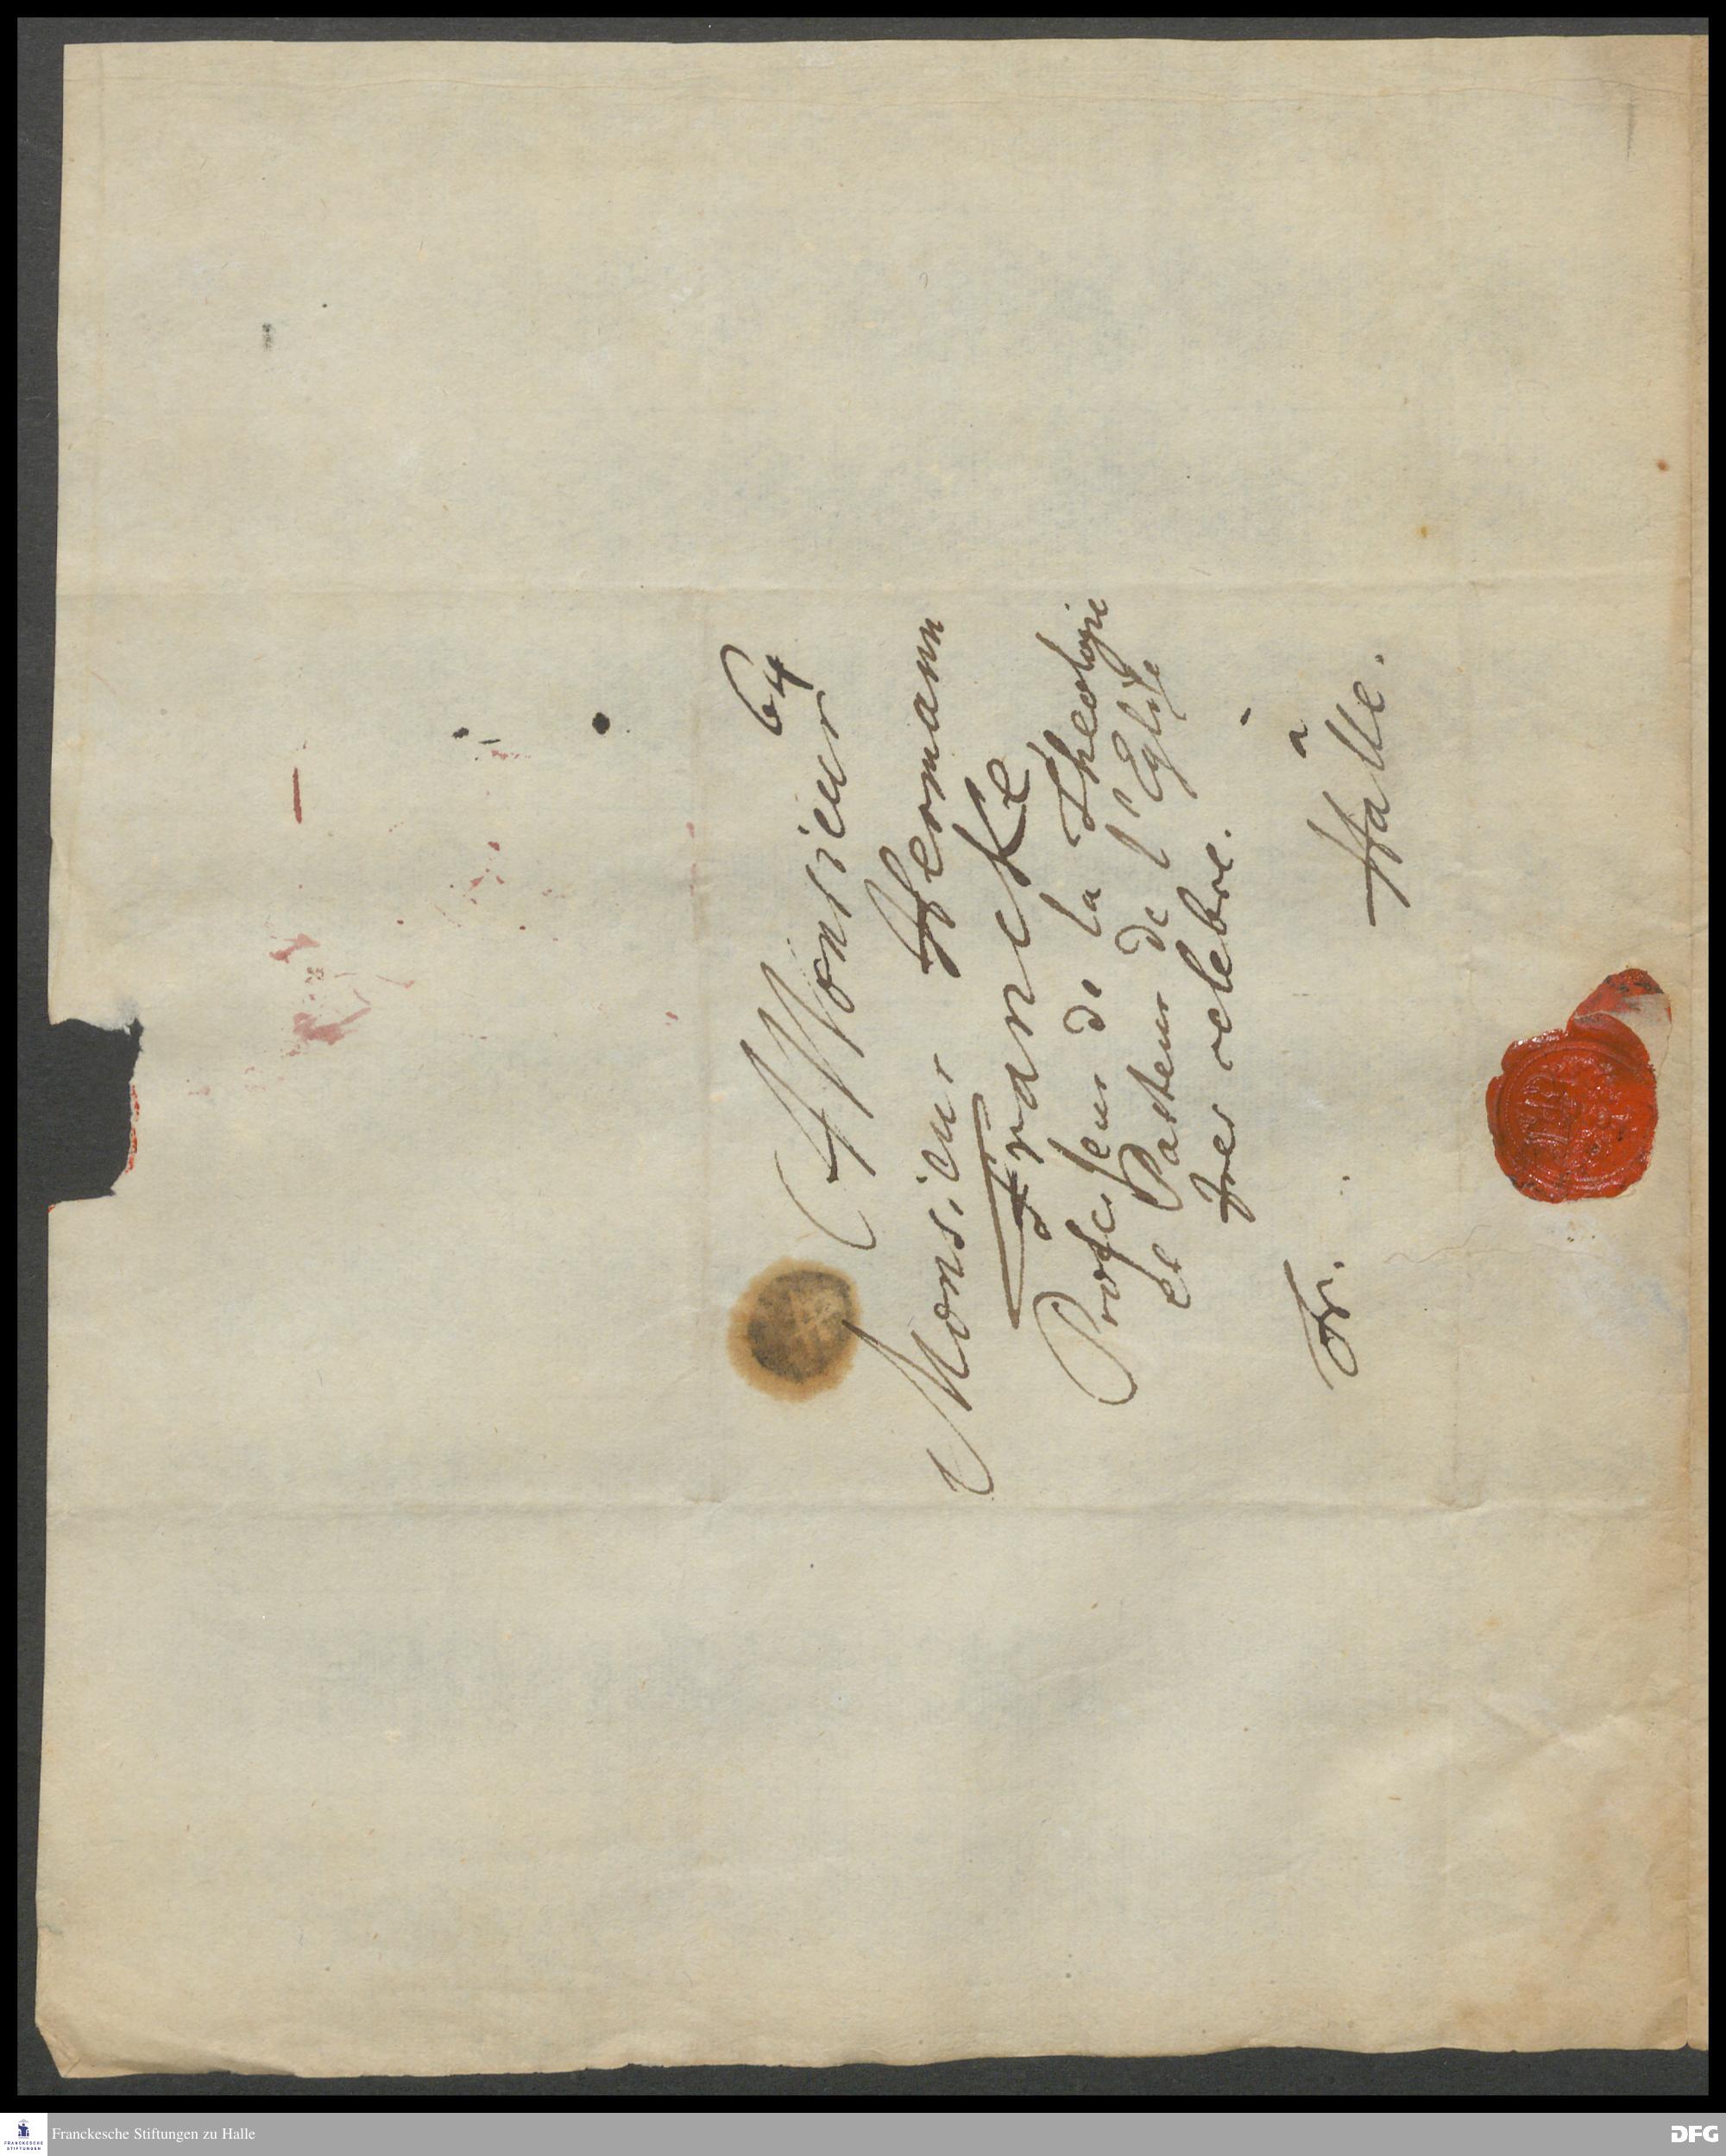 64
Monsieur
Monsieur Hermann
Francke
Professeur de la Theologie
et Pasteur de l'Eglise
tres celebre.
à
Halle.
Fr.
Franckesche Stiftungen zu Halle
FRANCKESCHE
STIFTUNGEN
DFG